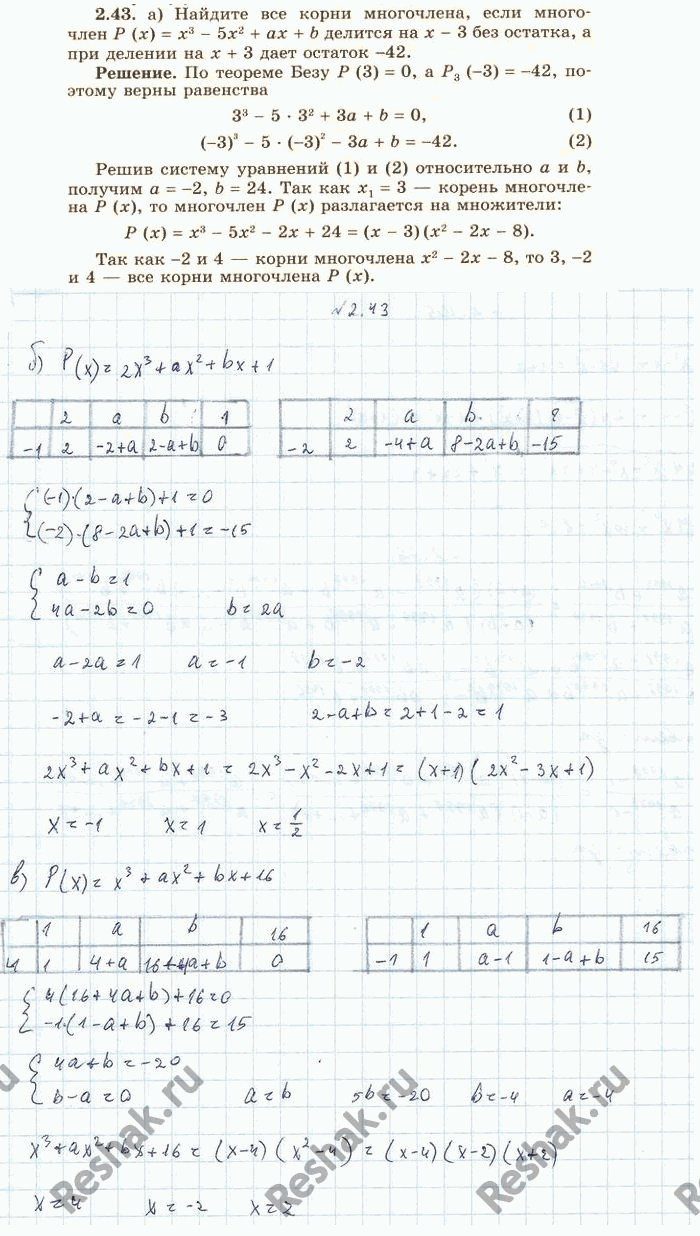 2.43. а) Найдите все корни многочлена, если много-
член P (x) = x³ – 5x² + ax + b делится на x – 3 без остатка, а
при делении на x + 3 дает остаток –42.
Решение. По теореме Безу P (3) = 0, а P₃ (–3) = –42, по-
этому верны равенства
3³ – 5 · 3² + 3a + b = 0, (1)
(–3)³ – 5 · (–3)² – 3a + b = –42. (2)
Решив систему уравнений (1) и (2) относительно a и b,
получим a = –2, b = 24. Так как x₁ = 3 — корень многочле-
на P (x), то многочлен P (x) разлагается на множители:
P (x) = x³ – 5x² – 2x + 24 = (x – 3)(x² – 2x – 8).
Так как –2 и 4 — корни многочлена x² – 2x – 8, то 3, –2
и 4 — все корни многочлена P (x).
№2.43
б) P(x) = 2x³ + ax² + bx + 1
2 a b 1
-1 2 -2+a 2-a+b 0
2 a b
-2 2 -4+a 8-2a+b -15
(-1)·(2-a+b)+1=0
(-2)·(8-2a+b)+1=-15
a-b=1
4a-2b=0 b=2a
a-2a=1 a=-1 b=-2
-2+a=-2-1=-3 2-a+b=2+1-2=1
2x³+ax²+bx+1=2x³-x²-2x+1=(x+1)(2x²-3x+1)
x=-1 x=1 x=1/2
в) P(x)=x³+ax²+bx+16
1 a b 16
4 1 4+a 16+4a+b 0
1 a b 16
-1 1 a-1 1-a+b 15
4(16+4a+b)+16=0
-1·(1-a+b)+16=15
4a+b=-20
b-a=0 a=b 5b=-20 b=-4 a=-4
x³+ax²+bx+16=(x-4)(x²-4)=(x-4)(x-2)(x+2)
x=4 x=-2 x=2
Reshak.ru
Reshak.ru
Reshak.ru